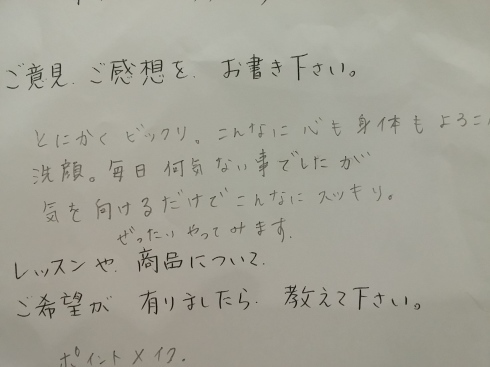 ご意見、ご感想を、お書き下さい。
とにかく ビックリ。こんなに 心も 身体も よろこ
洗顔。毎日 何気ない事でしたが
気を向けるだけで こんなに スッキリ。
ぜったい やってみます.
レッスンや、商品について、
ご希望が 有りましたら、教えて下さい。
ポイントメイク.